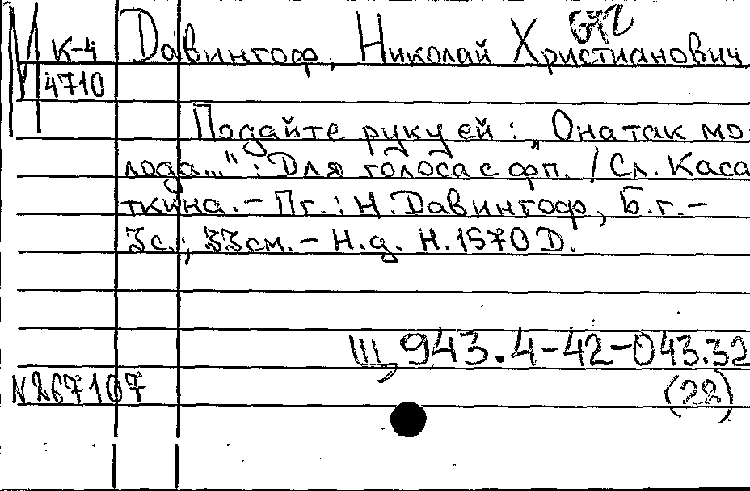 М К-4 Давингоф, Николай Христианович
4710
Подайте руку ей: „Она так мо-
лода..." : Для голоса с фп. / Сл. Каса
ткина. - Пг. : Н. Давингоф, Б.г. -
3с.; 33см. - Н.д. Н.1570 D.
Щ 943.4-42-043.32
N267107 (22)